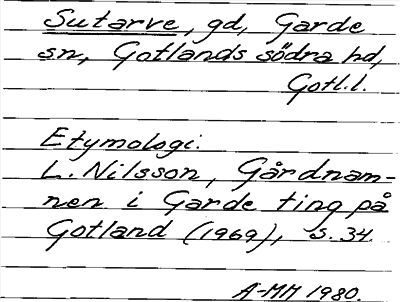 Sutarve, gd, Garde
sn, Gotlands södra hd,
Gotl.l.
Etymologi.
L. Nilsson, Gårdnam-
nen i Garde ting på
Gotland (1969), s. 34.
A-MH 1980.